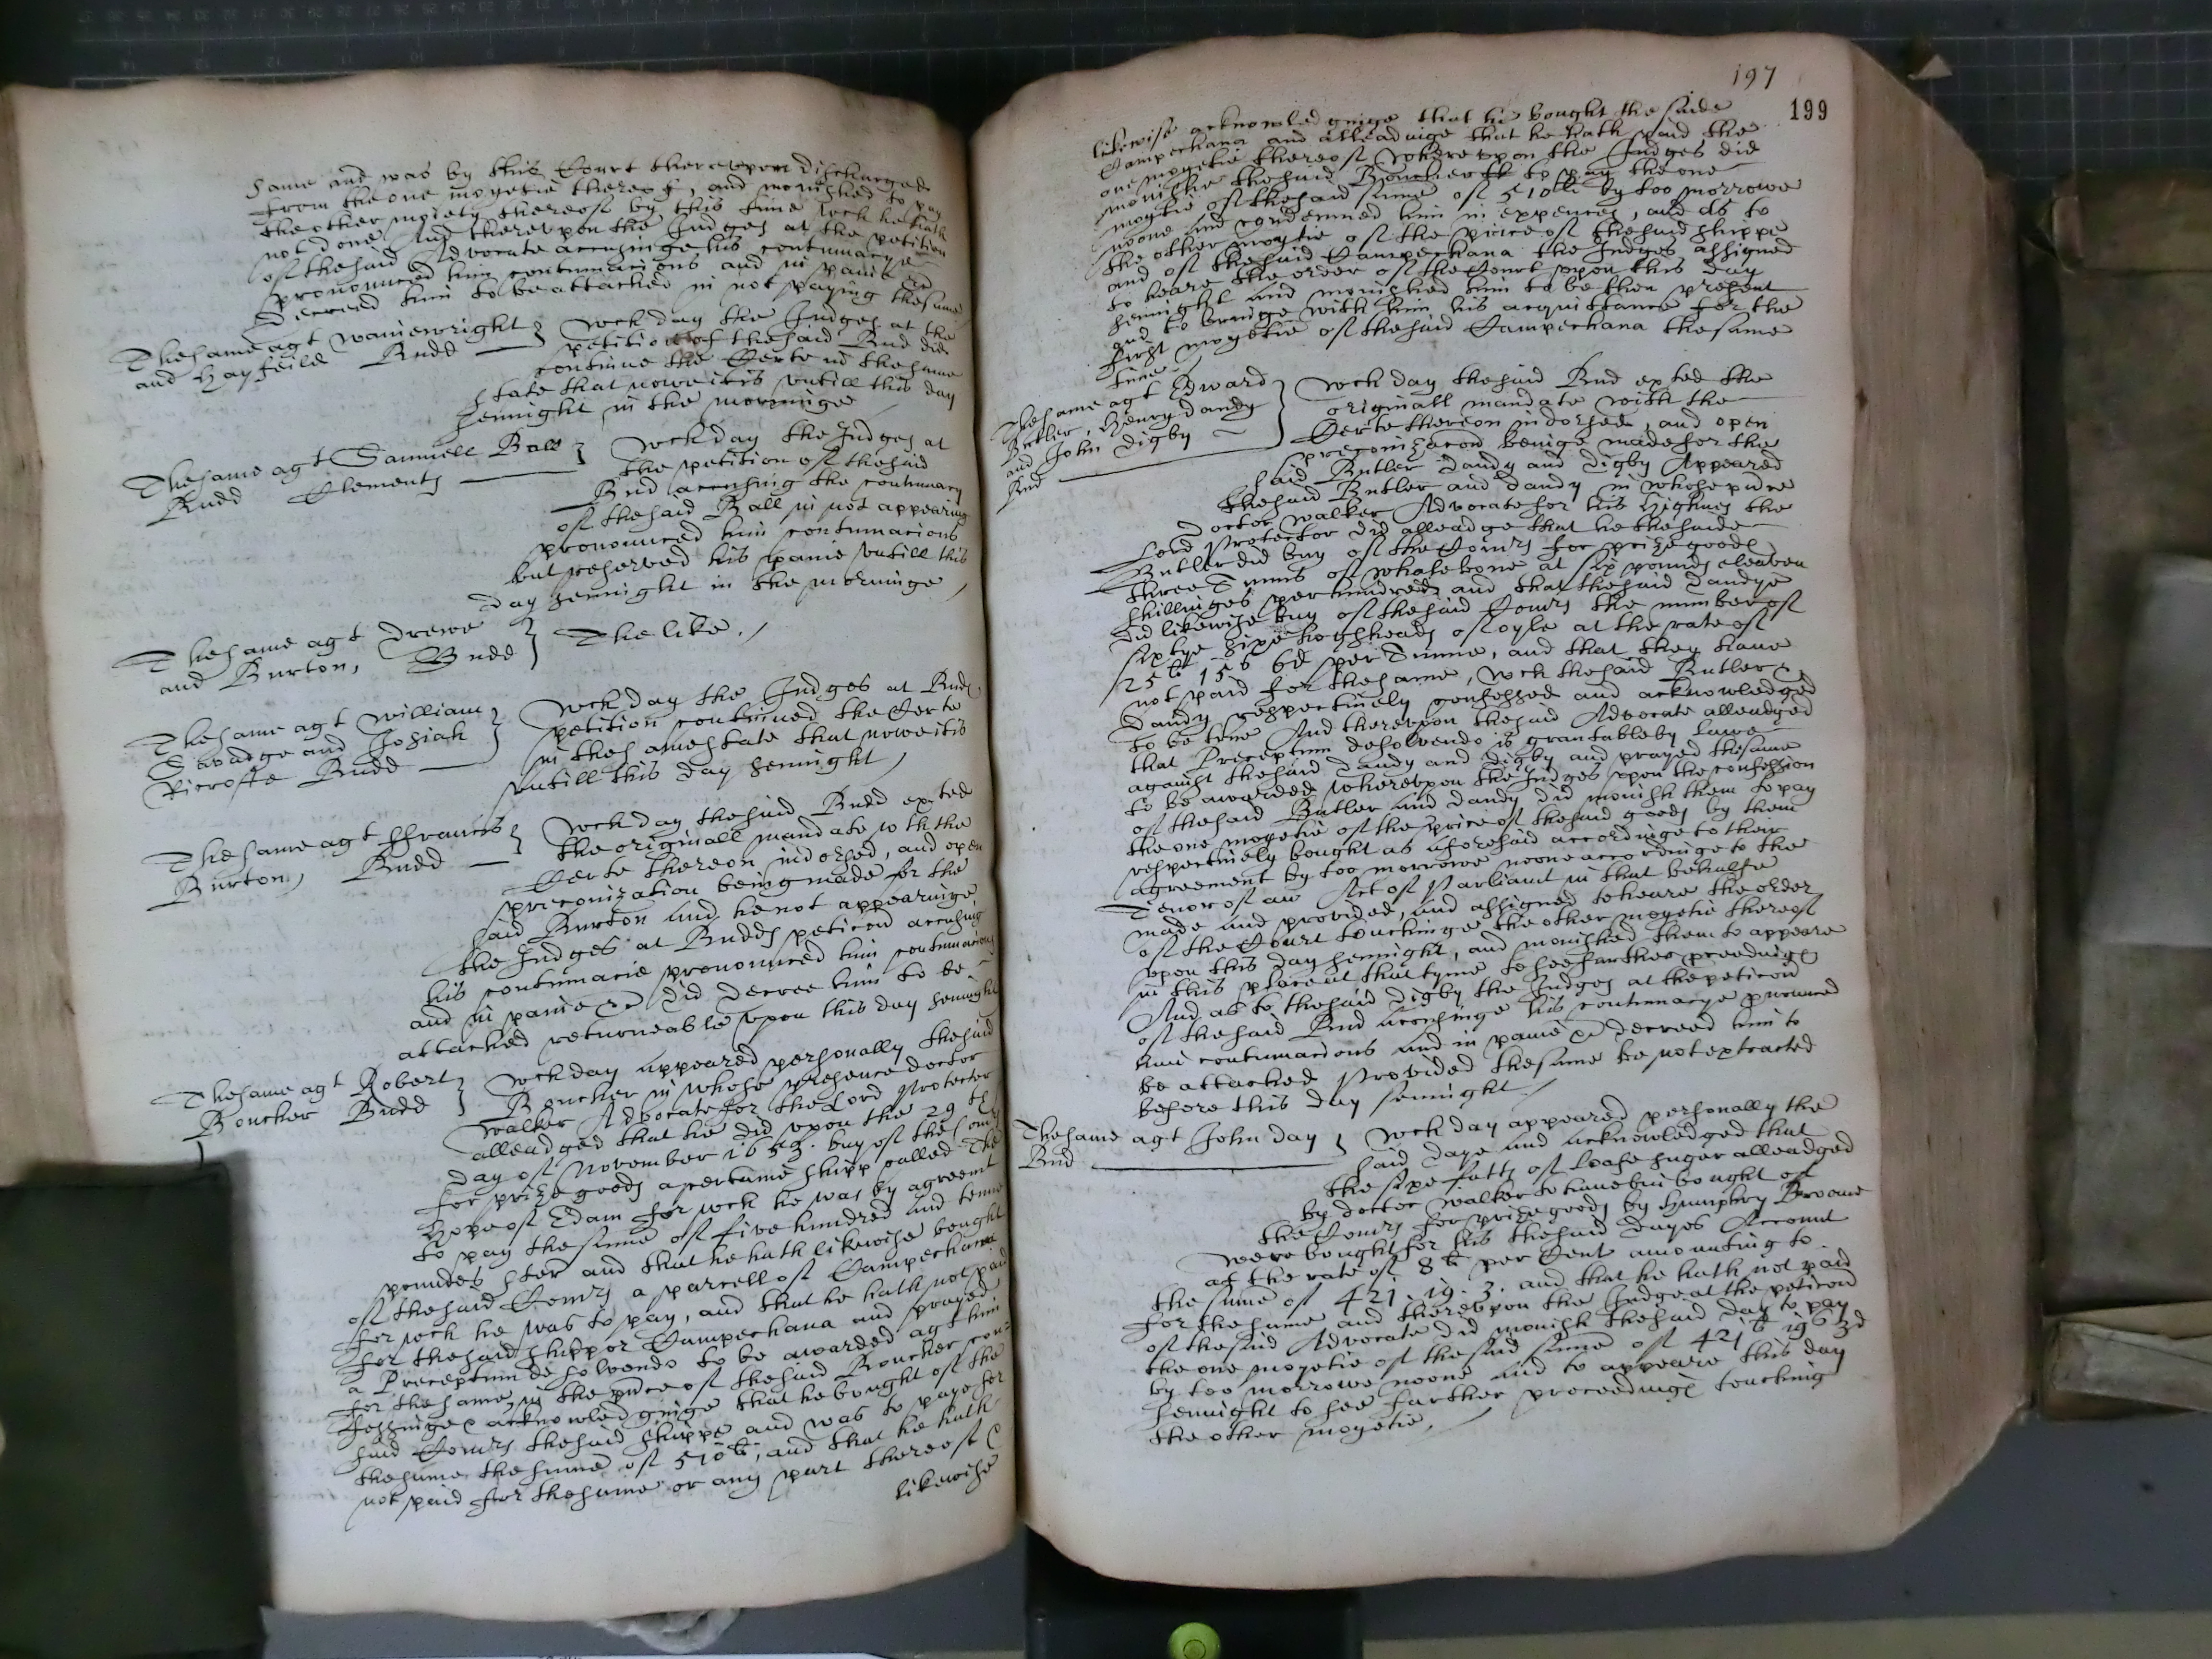 same and was by this Court thereupon discharged
from the one moyetie thereof, and monished to pay
the other moiety thereof by this time wch he hath
not done And thereupon the Judges at the petition
of the said Advocate accusinge his contumacye
pronounced him contumacious and in paine &c
decreed him to be attached in not paying the same
The same agt Wainewright
and Hayfeild Budd
wch day the Judges at the
petition of the said Bud did
continue the Certe in the same
state that nowe it is untill this day
sennight in the morninge
The same agt Samuell Ball
Budd Clements
wch day the Judges at
the petition of the said
Bud accusing the contumacy
of the said Ball in not appearing
pronounced him contumacious
but reserved his paine untill this
day sennight in the morninge
The same agt Drewe
and Burton, Budd
The like.
The same agt William
Savadge and Josiah
Ricrofte Budd
wch day the Judges at Buds
petition continued the Certe
in the same state that nowe it is
untill this day sennight
The same agt Ffrancis
Burton, Budd
wch day the said Budd exted
the originall mandate wth the
Certe thereon indorsed, and open
preconization being made for the
said Burton and he not appearinge
the Judges at Budds peticon accusing
his contumacie pronounced him contumacious
and in paine &c did decree him to be
attached returneable upon this day sennight
The same agt Robert
Boucher Budd
wch day appeared personally the said
Boucher in whose presence doctor
Walker Advocate for the Lord Protector
alleadged that he did upon the 29th
day of November 1653. buy of the Comrs
for prize goods a certaine shipp called The
Hope of Edam for wch he was by agreemt
to pay the summe of five hundred and tenne
poundes ster and that he hath likewise bought
of the said Comrs a parcell of Campechana
for wch he was to pay, and that he hath not paid
for the said shipp or Campechana and prayed
a Preceptum de solvendo to be awarded agt him
for the same, in the pnce of the said Boucher con=
fessinge & acknowledginge that he bought of the
said Comrs the said shippe and was to paye for
the same the summe of 510li, and that he hath
not paid for the same or any part thereof &
likewise
197
199
likewise acknowledginge that he bought the saide
Campechana and alleadginge that he hath paid the
one moyetie thereof whereupon the Judges did
monishe the said Boucher to pay the one
moytie of the said summe of 510li by too morrowe
noone and condemned him in expences, and as to
the other moytie of the price of the said shippe
and of the said Campechana the Judges assigned
to heare the order of the Court upon this day
sennight and monished him to be then present
and to bringe with him his acquittance for the
first moyetie of the said Campechana the same
time
The same agt Edward
Butler, Henry Dandy
and John Digby
Bud
wch day the said Bud exted the
originall mandate with the
Certe thereon indorsed, and open
preconizacon beinge made for the
said Butler Dandy and Digby Appeared
the said Butler and Dandy in whose pnce
Doctor Walker Advocate for his Highnes the
Lord Protector did alleadge that he the saide
Butler did buy of the Comrs for prize goods
three Tunns of whalebone at six pounds eleaven
shillinges per hundred and that the said Dandye
did likewise buy of the said Comrs the number of
sixtye sixe hogsheads of oyle at the rate of
25li 15s 6d per Tunne, and that they have
not paid for the same, wch the said Butler &
Dandy respectively confessed and acknowledged
to be true And thereupon the said Advocate alleadged
that Preceptum de solvendo is grantable by Lawe
against the said Dandy and Digby and prayed the same
to be awarded whereupon the Judges upon the confession
of the said Butler and Dandy did monish them to pay
the one moyetie of the price of the said goods by them
respectively bought as aforesaid accordinge to their
agreement by too morrowe noone accordinge to the
Tenor of an Act of Parliamt in that behalfe
made and provided, and assigned to heare the order
of the Court touchinge the other moyetie thereof
upon this day sennight, and monished them to appeare
in this place at that tyme to see farther proceedings
And as to the said Digby the Judges at the peticon
of the said Bud accusinge his contumacye pnounced
him contumacious and in paine &c decreed him to
be attached Provided the same be not extracted
before this day sennight.
The same agt John Day
Bud
wch day appeared personally the
said Daye and acknowledged that
the sixe fatts of loafe sugar alleadged
by doctor Walker to have bin bought of
the Comrs for prize goods by Humphry Broome
were bought for his the said Dayes Accomt
at the rate of 8li per Cent amounting to
the summe of 421. 19. 3. and that he hath not paid
for the same and thereupon the Judge at the peticon
of the said Advocate did monish the said Day to pay
the one moyetie of the said summe of 421li 19s 3d
by too morrowe noone and to appeare this day
sennight to see farther proceedings touching
the other moyetie.